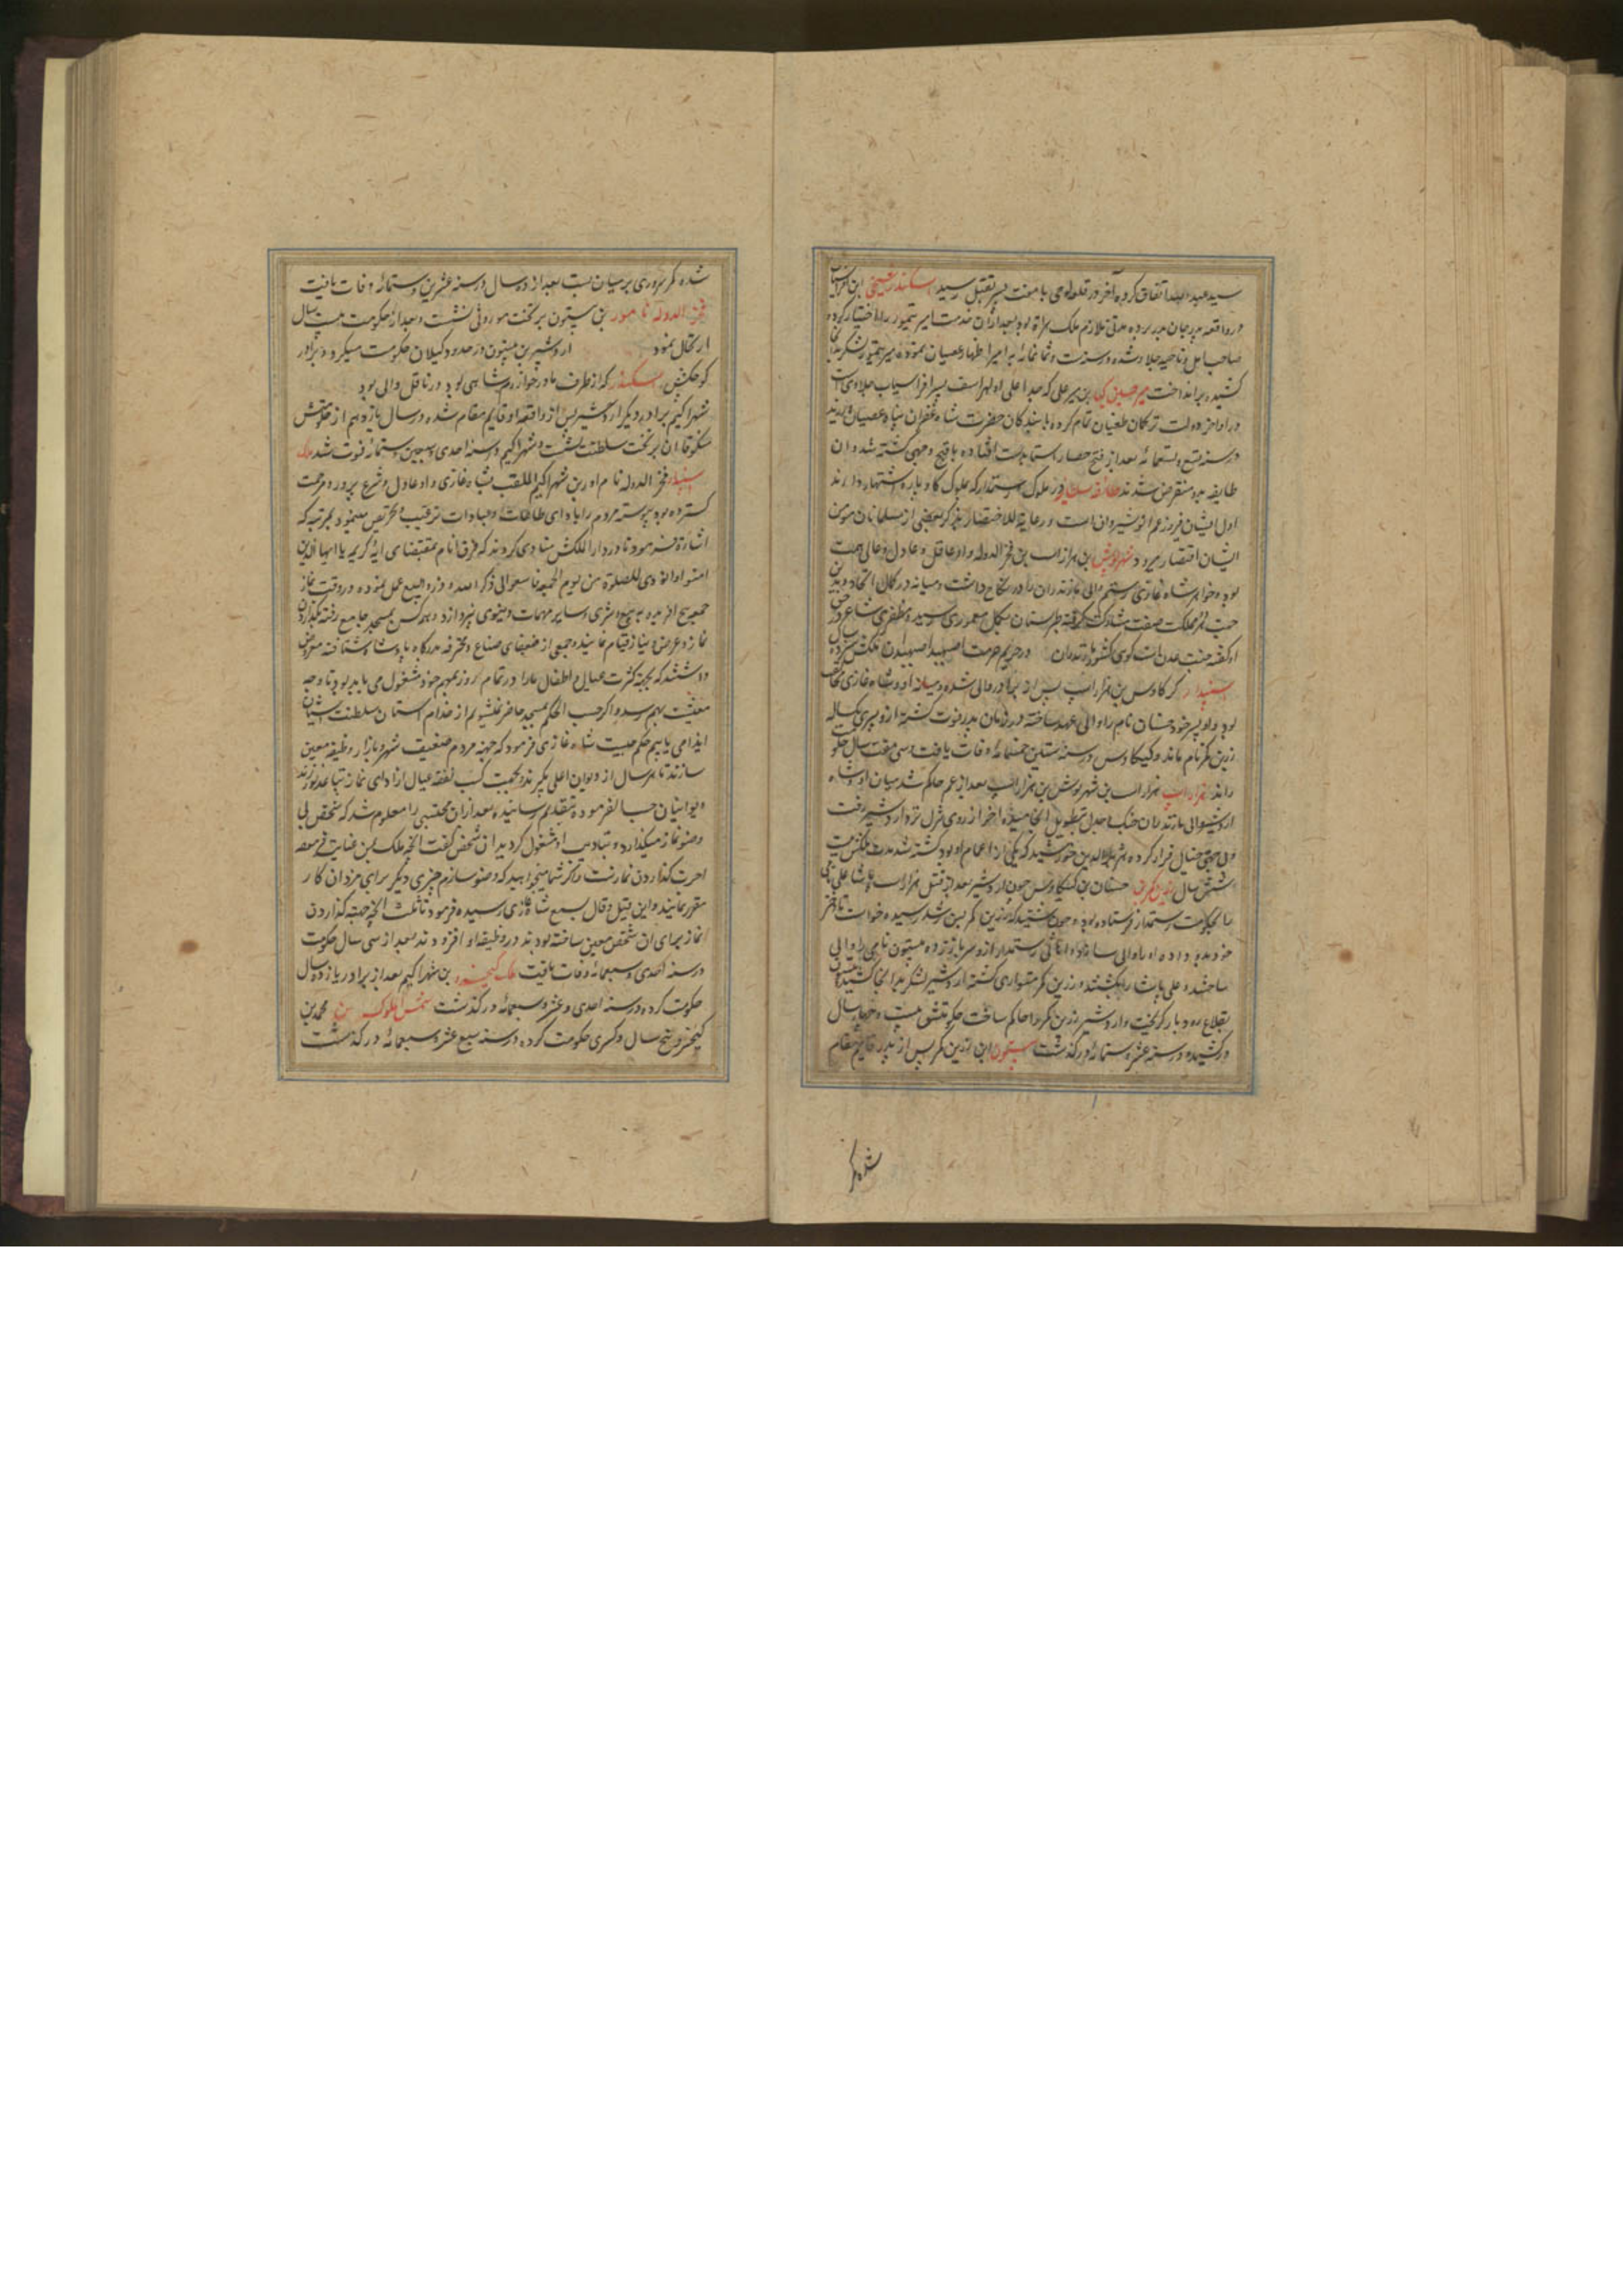 سید عبد الله اتفاق کرده آخر در قلعه لوحی با هفت پسر بقتل رسید اسکندر شیخی ابن افراسیاب
در واقعه پدر جان بدر برده مدتی ملازم ملک هراة بود بعد ازان خدمت امیر تیمور را اختیار کرده
صاحب امل و ناحیه جلاو شده و در سنه ست و ثمانمائه بر امیر اظهار عصیان نموده امیر تیمور لشکر بدانجا
کشیده براند اخت میر حسین کیا بن میر علی که جد اعلی او لهراسف پسر افراسیاب جلاوی است
در اواخر دولت ترکمان طغیان تمام کرده با بندکان حضرت شاه غفران پناه عصیان
در سنه تسع و تسعمائه بعد از فتح حصار استا بدست افتاده باقبح وجهی کشته شد و ان
طایفه بدو منقرض شدند طائفه سیام در ملوک رستمدار که بملوک کاوباره اشتهار دارند
اول ایشان فیروز عم انوشیروان است و رعایة للاختصار بذکر بعضی از مسلمانان مومن
ایشان اقتصار میرود شهرنوش ابن هزاراسب بن فخر الدوله و او عاقل و عادل و عالی همت
بود و خواهر شاه غازی رستم والی مازندران را در نکاح داشت و میانه در کمال اتحاد و بدین
جهت هر مملکت صفت مشارکت کرفته طبرستان بکمال معموری رسید و مظفری شاعر در حق
او کفته جنت عدن است کوی کشور مازندران در حریم حرمت اصپهبد اصپهبدان
اسپهبد کیکاوس بن هزاراسب پس از برادر والی شده و میانه او و شاه غازی مخالفت
بود و او پسر خود جستان نام را ولی عهد ساخته در زمان پدر فوت کشته ازو پسری یکساله
زرین کمر نام ماند و کیکاوس در سنه ستین و خمسمائه وفات یافت و سی هفت سال حکومت
راند هزاراسب هزاراسب بن شهرنوش بن هزاراسب بعد از عم حاکم شد میان او و شاه
اردشیر والی مازندران جنک و جدل بتطویل انجامیده اخر از روی عجز نزد اردشیر رفت
شش سال زرین کمر بن جستان بن کیکاوس چون اردشیر بعد از قتل هزاراسب پاشا علی نامی
را بحکومت رستمدار فرستاده بود و چون شنید که زرین کمر بسن رشد رسیده خواست تا دختر
خود بدو داده او را والی سازد اهالی رستمدار ازو سر باز زده بیستون نامی را والی
ساختند و علی پاشا را بکشتند و زرین کمر متواری کشته اردشیر لشکر بدانجا کشیده بیستون
بقلاع رودبار کریخت و اردشیر زرین کمر را حاکم ساخت حکومتش بیست و چهار سال
در کشیده در سنه عشر و ستمائه در کذشت بیستون ابن زرین کمر پس از پدر قایم مقام
شده کمر
شده کمر سروری بر میان بست بعد از ده سال در سنه عشرین و ستمائه وفات یافت
فخر الدوله نامور بن بیستون بر تخت موروثی نشست و بعد از حکومت بیست سال
ارتحال نمود اردشیر بن بیستون در حدود کیلان حکومت میکرد و برادر
کوچکش اسکندر که از طرف مادر خوارزمشاهی بود در ناتل والی بود
شهراکیم برادر دیکر اردشیر پس از واقعه او قایم مقام شده در سال یازدهم از حکومتش
منکوقاان بر تخت سلطنت نشست و شهراکیم در سنه احدی و سبعین و ستمائه فوت شد ملک
اسپهبد فخر الدوله نام اور بن شهراکیم الملقب بشاه غازی و او عادل و شرع پرور و مرحمت
کستر بود پیوسته مردم را باداى طاعات و عبادات ترغیب و تحریص مینمود بمرتبه که
اشارة فرمود تا در دار الملکش منادی کردند که فرق انام بمقتضای ایة کریمه یا ایها الذین
امنوا اذا نودی للصلوة من یوم الجمعة فاسعوا الی ذکر الله و ذروا البیع عمل نموده در وقت نماز
جمعه هیچ افریده به بیع و شری و سایر مهمات دنیوی نپردازد و همه کس بمسجد جامع رفته بکذاردن
نماز و عرض نیاز قیام نمایند و جمعی از ضعفای صناع و محترفه بدرکاه پادشاه شتافته معروض
داشتند که بجهة کثرت عیال و اطفال ما را در تمام روز بمهم خود مشغول می باید بود تا وجه
معیشت بهم رسد و اکر حسب الحکم بمسجد حاضر نشویم از خدام آستان سلطنت آشیان
ایذا می یابیم حکم ملک شاه غازی فرمود که جهة مردم ضعیف شهر و بازار وظیفه معین
سازند تا هر سال از دیوان اعلی بکیرند و بجهت کسب نفقه عیال از ادای نماز تقاعد نورزند
دیوانیان حسب الفرموده بتقدیم رسانیده بعد ازان محتسبی را معلوم شد که شخصی بی
وضو نماز میکذارد و بتادیب او مشغول کردید ان شخص کفت انچه ملک بمن عنایت فرموده
اجرت کذاردن نماز است و اکر شما میخواهید که وضو سازم چیزی دیکر برای مزد ان کار
مقرر نمایند و این قیل و قال بسمع شاه غازی رسیده فرمود تا ثلث انچه جهة کذاردن
نماز برای ان شخص معین ساخته بودند در وظیفه او افزودند بعد از سی سال حکومت
در سنه احدی و سبعمائه وفات یافت ملک کیخسرو بن شهراکیم بعد از برادر یازده سال
حکومت کرده در سنه احدی و عشر و سبعمائه در کذشت شمس الملوک بن محمد بن
کیخسرو پنج سال و کسری حکومت کرده در سنه سبع عشر و سبعمائه در کذشت